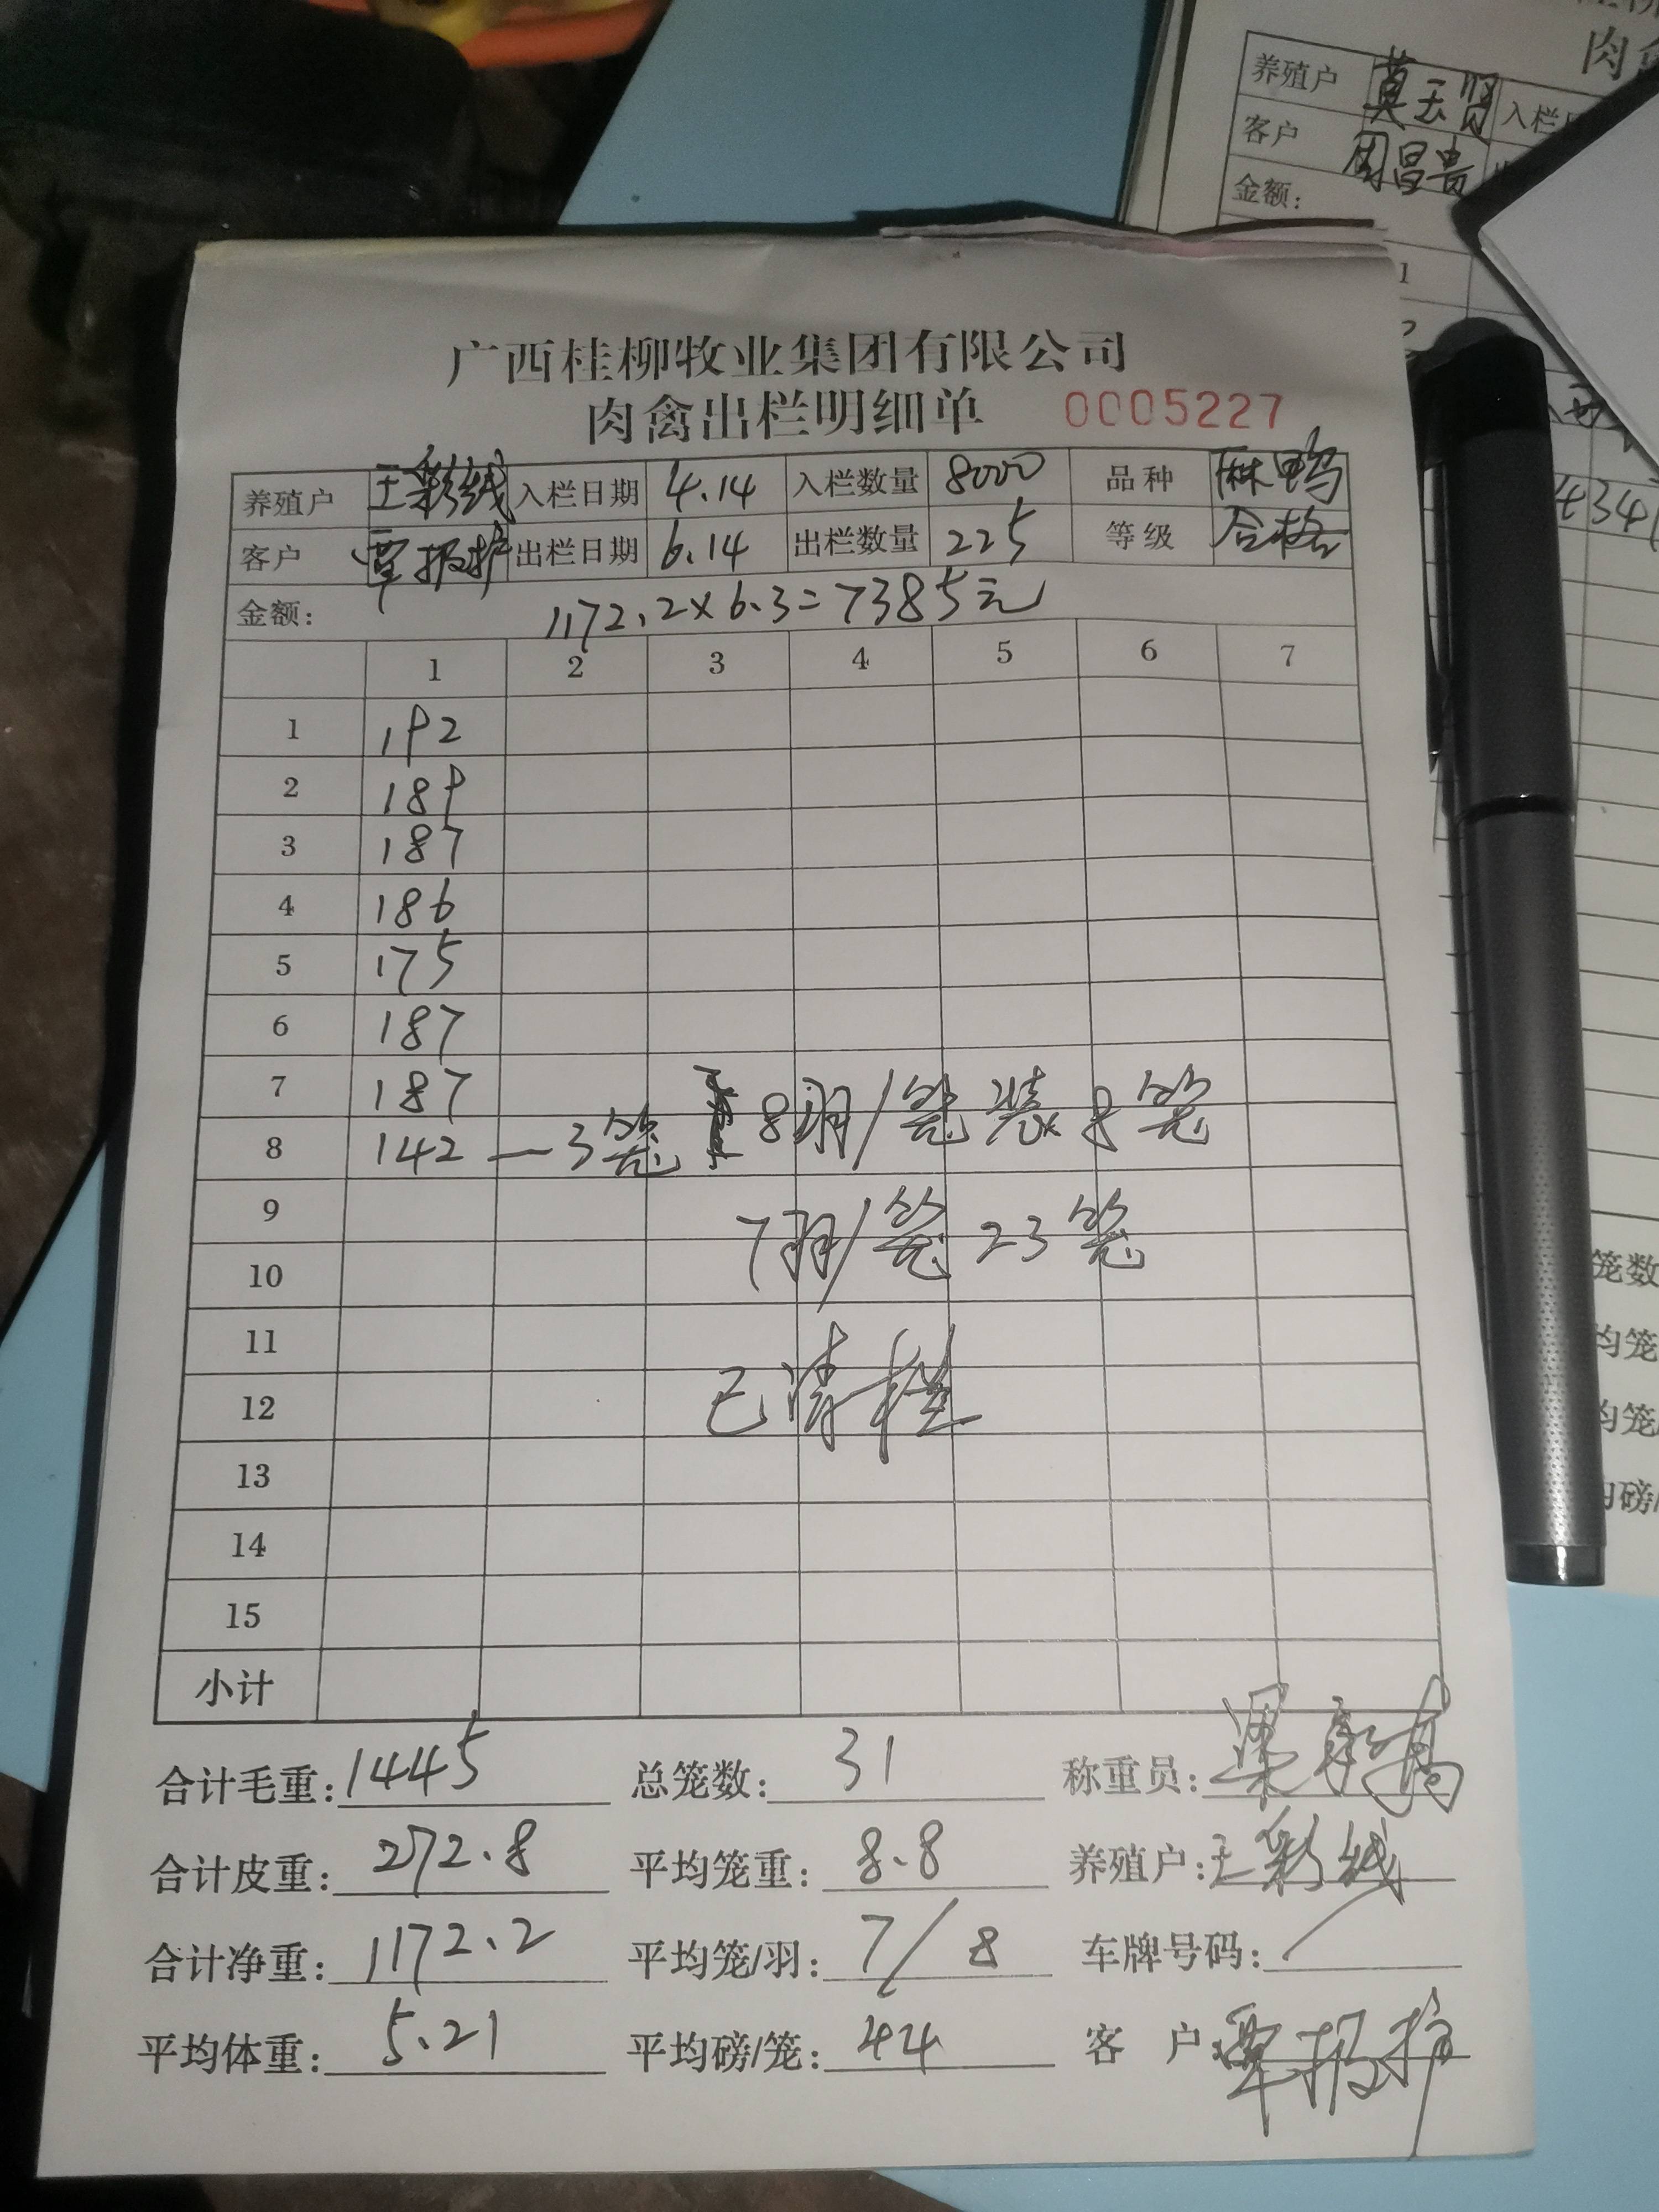 肉
养殖户 莫玉贤 入栏
客户 周昌贵
金额:
1
434
笼数
均笼
均笼/
均磅/
广西桂柳牧业集团有限公司
肉禽出栏明细单 0005227
养殖户 王彩线 入栏日期 4.14 入栏数量 8000 品种 麻鸭
客户 覃报护 出栏日期 6.14 出栏数量 225 等级 合格
金额: 1172.2×6.3=7385元
1 2 3 4 5 6 7
1 192
2 189
3 187
4 186
5 175
6 187
7 187
8 142 — 3笼 8羽/笼 装8笼
9 7羽/笼 23笼
10
11
12 已清栏
13
14
15
小计
合计毛重: 1445 总笼数: 31 称重员: 梁
合计皮重: 272.8 平均笼重: 8.8 养殖户: 王彩线
合计净重: 1172.2 平均笼/羽: 7/8 车牌号码: /
平均体重: 5.21 平均磅/笼: 44 客 户: 覃报护